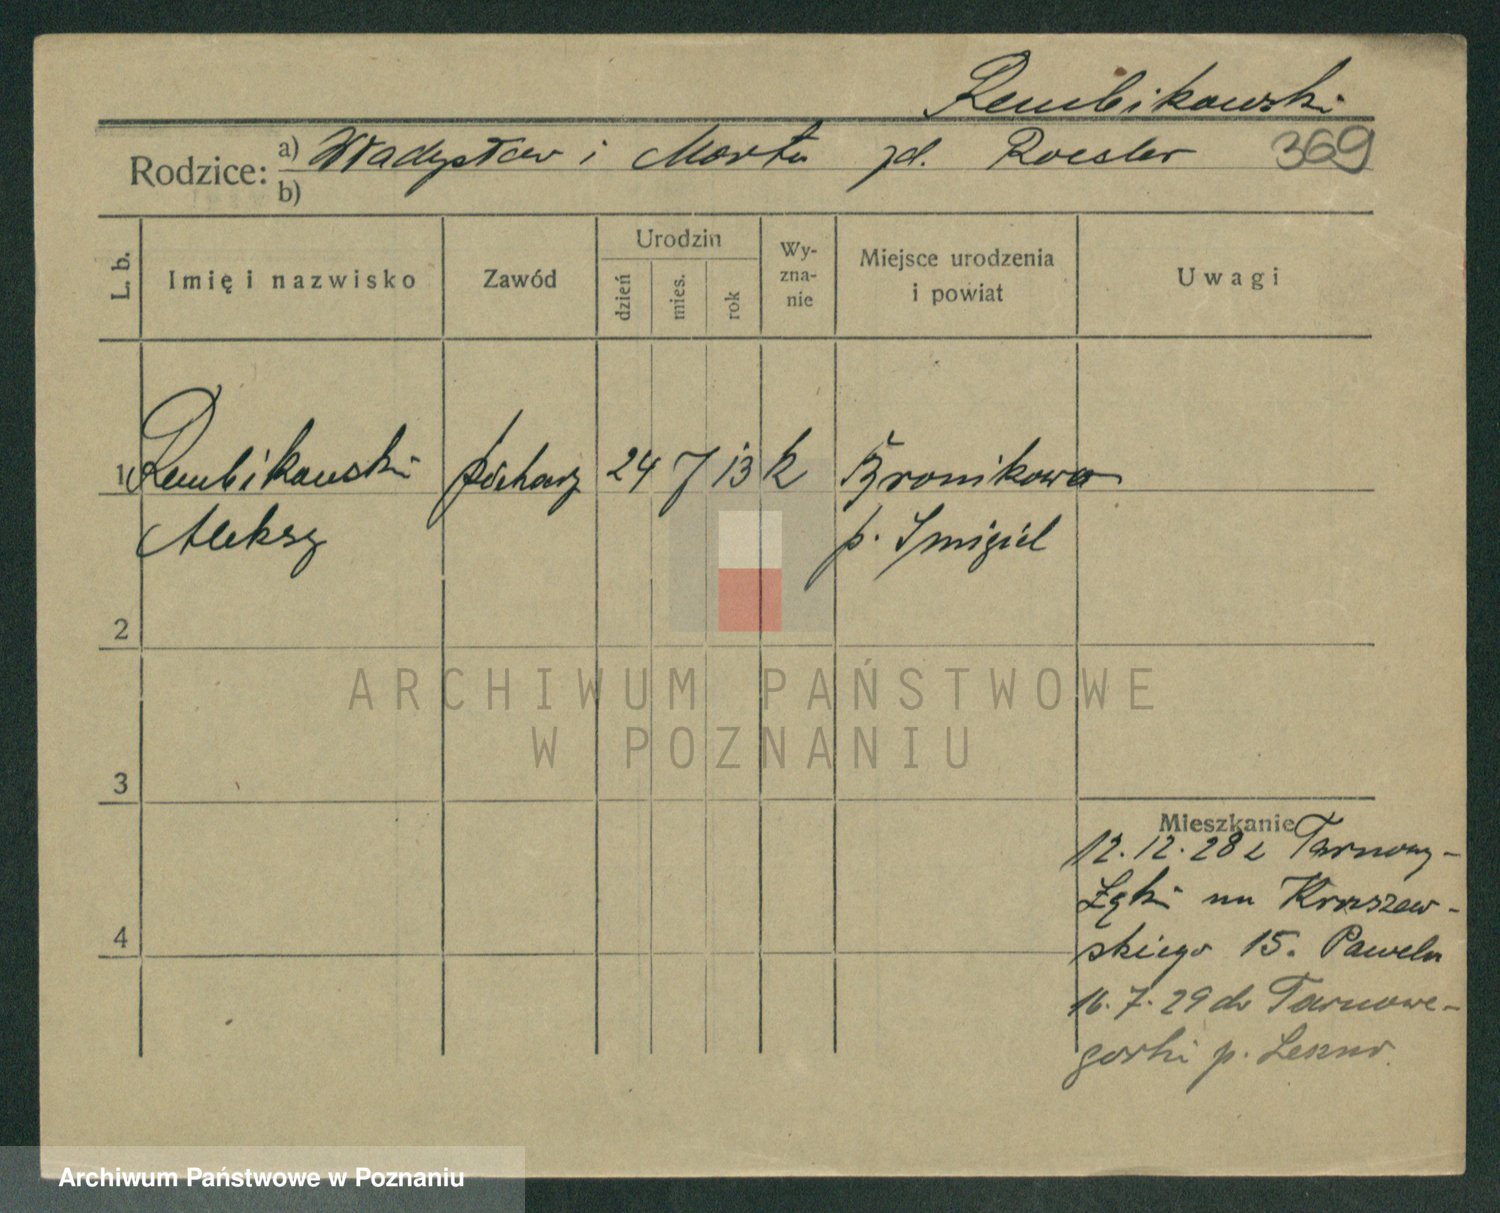 Rembikowski
Rodzice: a) Władysław i Marta zd. Roesler 369
b)
L. b. Imię i nazwisko Zawód Urodzin dzień mies. rok Wy-zna-nie Miejsce urodzenia i powiat Uwagi
1 Rembikowski piekarz 24 7 13 k Bronikowo
Aleksy p. Śmigiel
2
3
4
Mieszkanie
12.12.28 z Tarnowy-
Łąki na Kraszew-
skiego 15. Pawela
16.7.29 do Tarnowe-
gorki p. Leszno.
ARCHIWUM PAŃSTWOWE
W POZNANIU
Archiwum Państwowe w Poznaniu